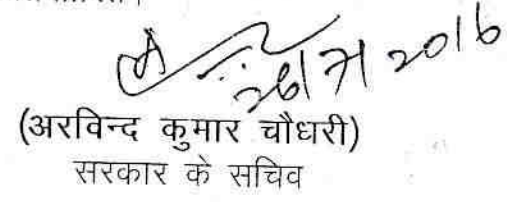 26/7/2016
(अरविन्द कुमार चौधरी)
सरकार के सचिव